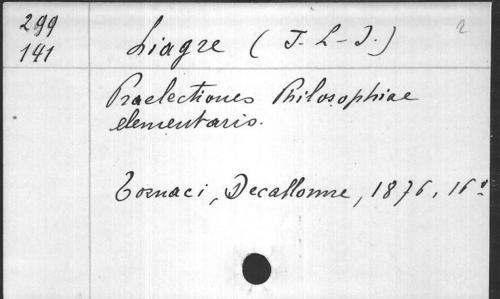 299
141
Liagre (J.-L-J.)
2
Praelectiones Philosophiae
elementaris.
Tornaci, Decallonne, 1876, 16º